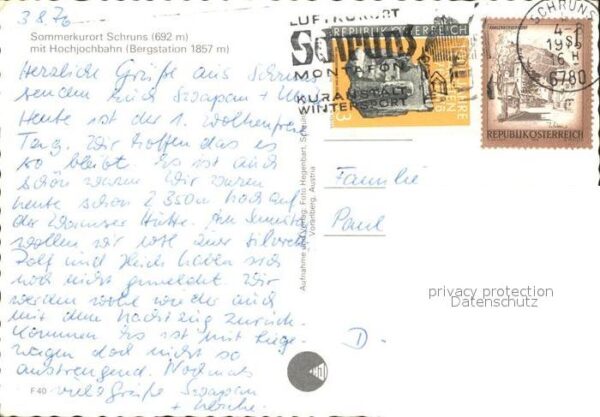 3.8.70
Sommerkurort Schruns (692 m)
mit Hochjochbahn (Bergstation 1857 m)
Herzliche Grüße aus Schruns
senden Euch
Heute ist der 1. Wolkenfreie
Tag. Wir hoffen das es
so bleibt. Es ist auch
schön warm. Wir waren
heute schon 2 350 m hoch auf
der Wormser Hütte. Am
wollen wir
Rolf und haben sich
noch nicht gemeldet. Wir
werden wohl wieder auch
mit dem Nachtzug zurück
kommen. Es ist mit Liege-
wagen doch nicht so
anstrengend. Nochmals
viele Grüße
+
F40
Aufnahme und Verlag: Foto Hegenbart, Schruns
Vorarlberg, Austria
LUFTKURORT
Schruns
MONTAFON
KURANSTALT
WINTERSPORT
REPUBLIK ÖSTERREICH
3
SCHRUNS
6780
REPUBLIK ÖSTERREICH
Familie
Paul
D.
privacy protection
Datenschutz